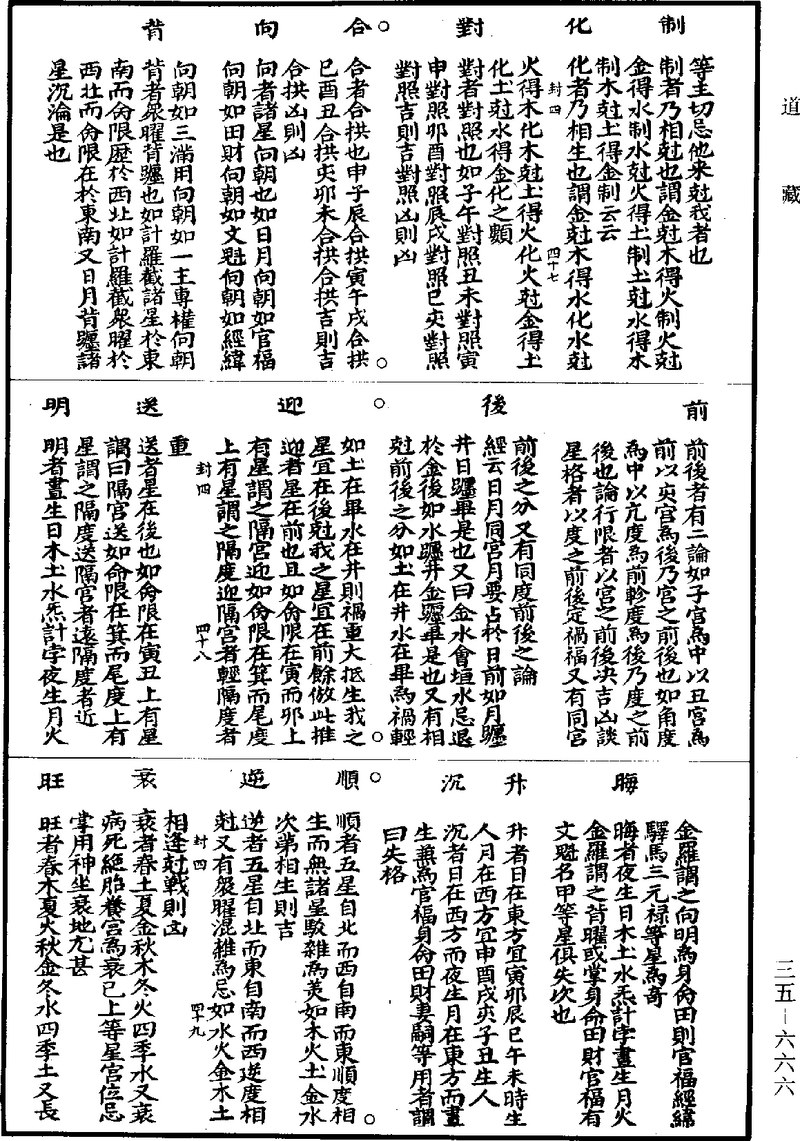 道藏
三五—六六六
等主切忌他来尅我者也
制
制者乃相尅也謂金尅木得火制火尅
金得水制水尅火得土制土尅水得木
制木尅土得金制云云
化
化者乃相生也謂金尅木得水化水尅
封四 四十七
火得木化木尅土得火化火尅金得土
化土尅水得金化之類
對
對者對照也如子午對照丑未對照寅
申對照卯酉對照辰戌對照巳亥對照
對照吉則吉對照凶則凶
合
合者合拱也申子辰合拱寅午戌合拱
巳酉丑合拱亥卯未合拱合拱吉則吉
合拱凶則凶
向
向者諸星向朝也如日月向朝如官福
向朝如田財向朝如文魁向朝如經緯
向朝如三滿用向朝如一主專權向朝
背
背者衆曜背躔也如計羅截諸星於東
南而命限歷於西北如計羅截衆曜於
西北而命限在於東南又日月背躔諸
星沉淪是也
前
前後者有二論如子宮爲中以丑宮爲
前以亥宮爲後乃宮之前後也如角度
爲中以亢度爲前軫度爲後乃度之前
後也論行限者以宮之前後决吉凶談
星格者以度之前後定禍福又有同宮
前後之分又有同度前後之論
後
經云日月同宮月要占於日前如月躔
井日躔畢是也又曰金水會垣水忌退
於金後如水躔井金躔畢是也又有相
尅前後之分如土在井水在畢爲禍輕
如土在畢水在井則禍重大抵生我之
星宜在後尅我之星宜在前餘倣此推
迎
迎者星在前也且如命限在寅而卯上
有星謂之隔宮迎如命限在箕而尾度
上有星謂之隔度迎隔宮者輕隔度者
封四 四十八
重
送
送者星在後也如命限在寅丑上有星
謂曰隔宮送如命限在箕而尾度上有
星謂之隔度送隔宮者遠隔度者近
明
明者晝生日木土水炁計孛夜生月火
金羅謂之向明爲身命田財官福經緯
驛馬三元禄等星爲奇
晦
晦者夜生日木土水炁計孛晝生月火
金羅謂之背曜或掌身命田財官福有
文魁名甲等星俱失次也
升
升者日在東方宜寅卯辰巳午未時生
人月在西方宜申酉戌亥子丑生人
沉
沉者日在西方而夜生月在東方而晝
生兼爲官福身命田財妻嗣等用者謂
曰失格
順
順者五星自北而西自南而東順度相
生而無諸星駁雜爲美如木火土金水
次第相生則吉
逆
逆者五星自北而東自南而西逆度相
尅又有衆曜混雜爲忌如水火金木土
封四 四十九
相逢尅戰則凶
衰
衰者春土夏金秋木冬火四季水又衰
病死絕胎養宮爲衰已上等星宮位忌
掌用神坐衰地尤甚
旺
旺者春木夏火秋金冬水四季土又長